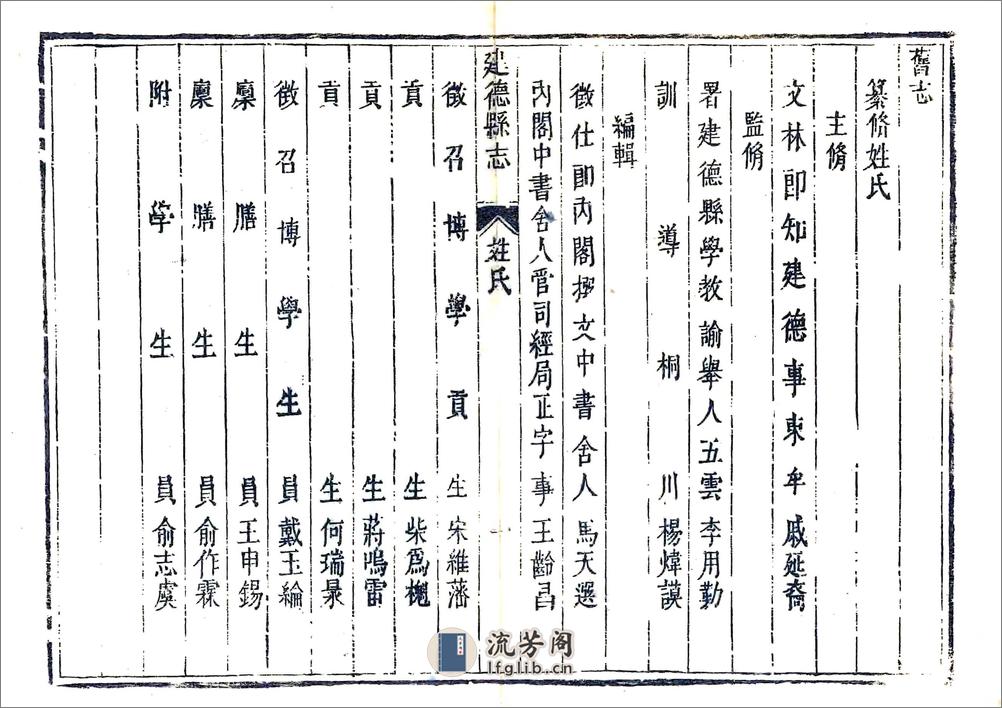 舊志
纂脩姓氏
主脩
文林郎知建德事東牟戚延裔
監脩
署建德縣學教諭舉人五雲李用勤
訓導桐川楊煒謨
編輯
徵仕郎內閣撰文中書舍人馬天選
內閣中書舍人管司經局正字事王齡昌
建德縣志
姓氏
一
徵召博學貢生宋維藩
貢生柴爲槐
貢生蔣鳴雷
貢生何瑞最
徵召博學生員戴玉綸
廩膳生員王申錫
廩膳生員俞作霖
附學生員俞志虞
流芳阁
lfglib.cn